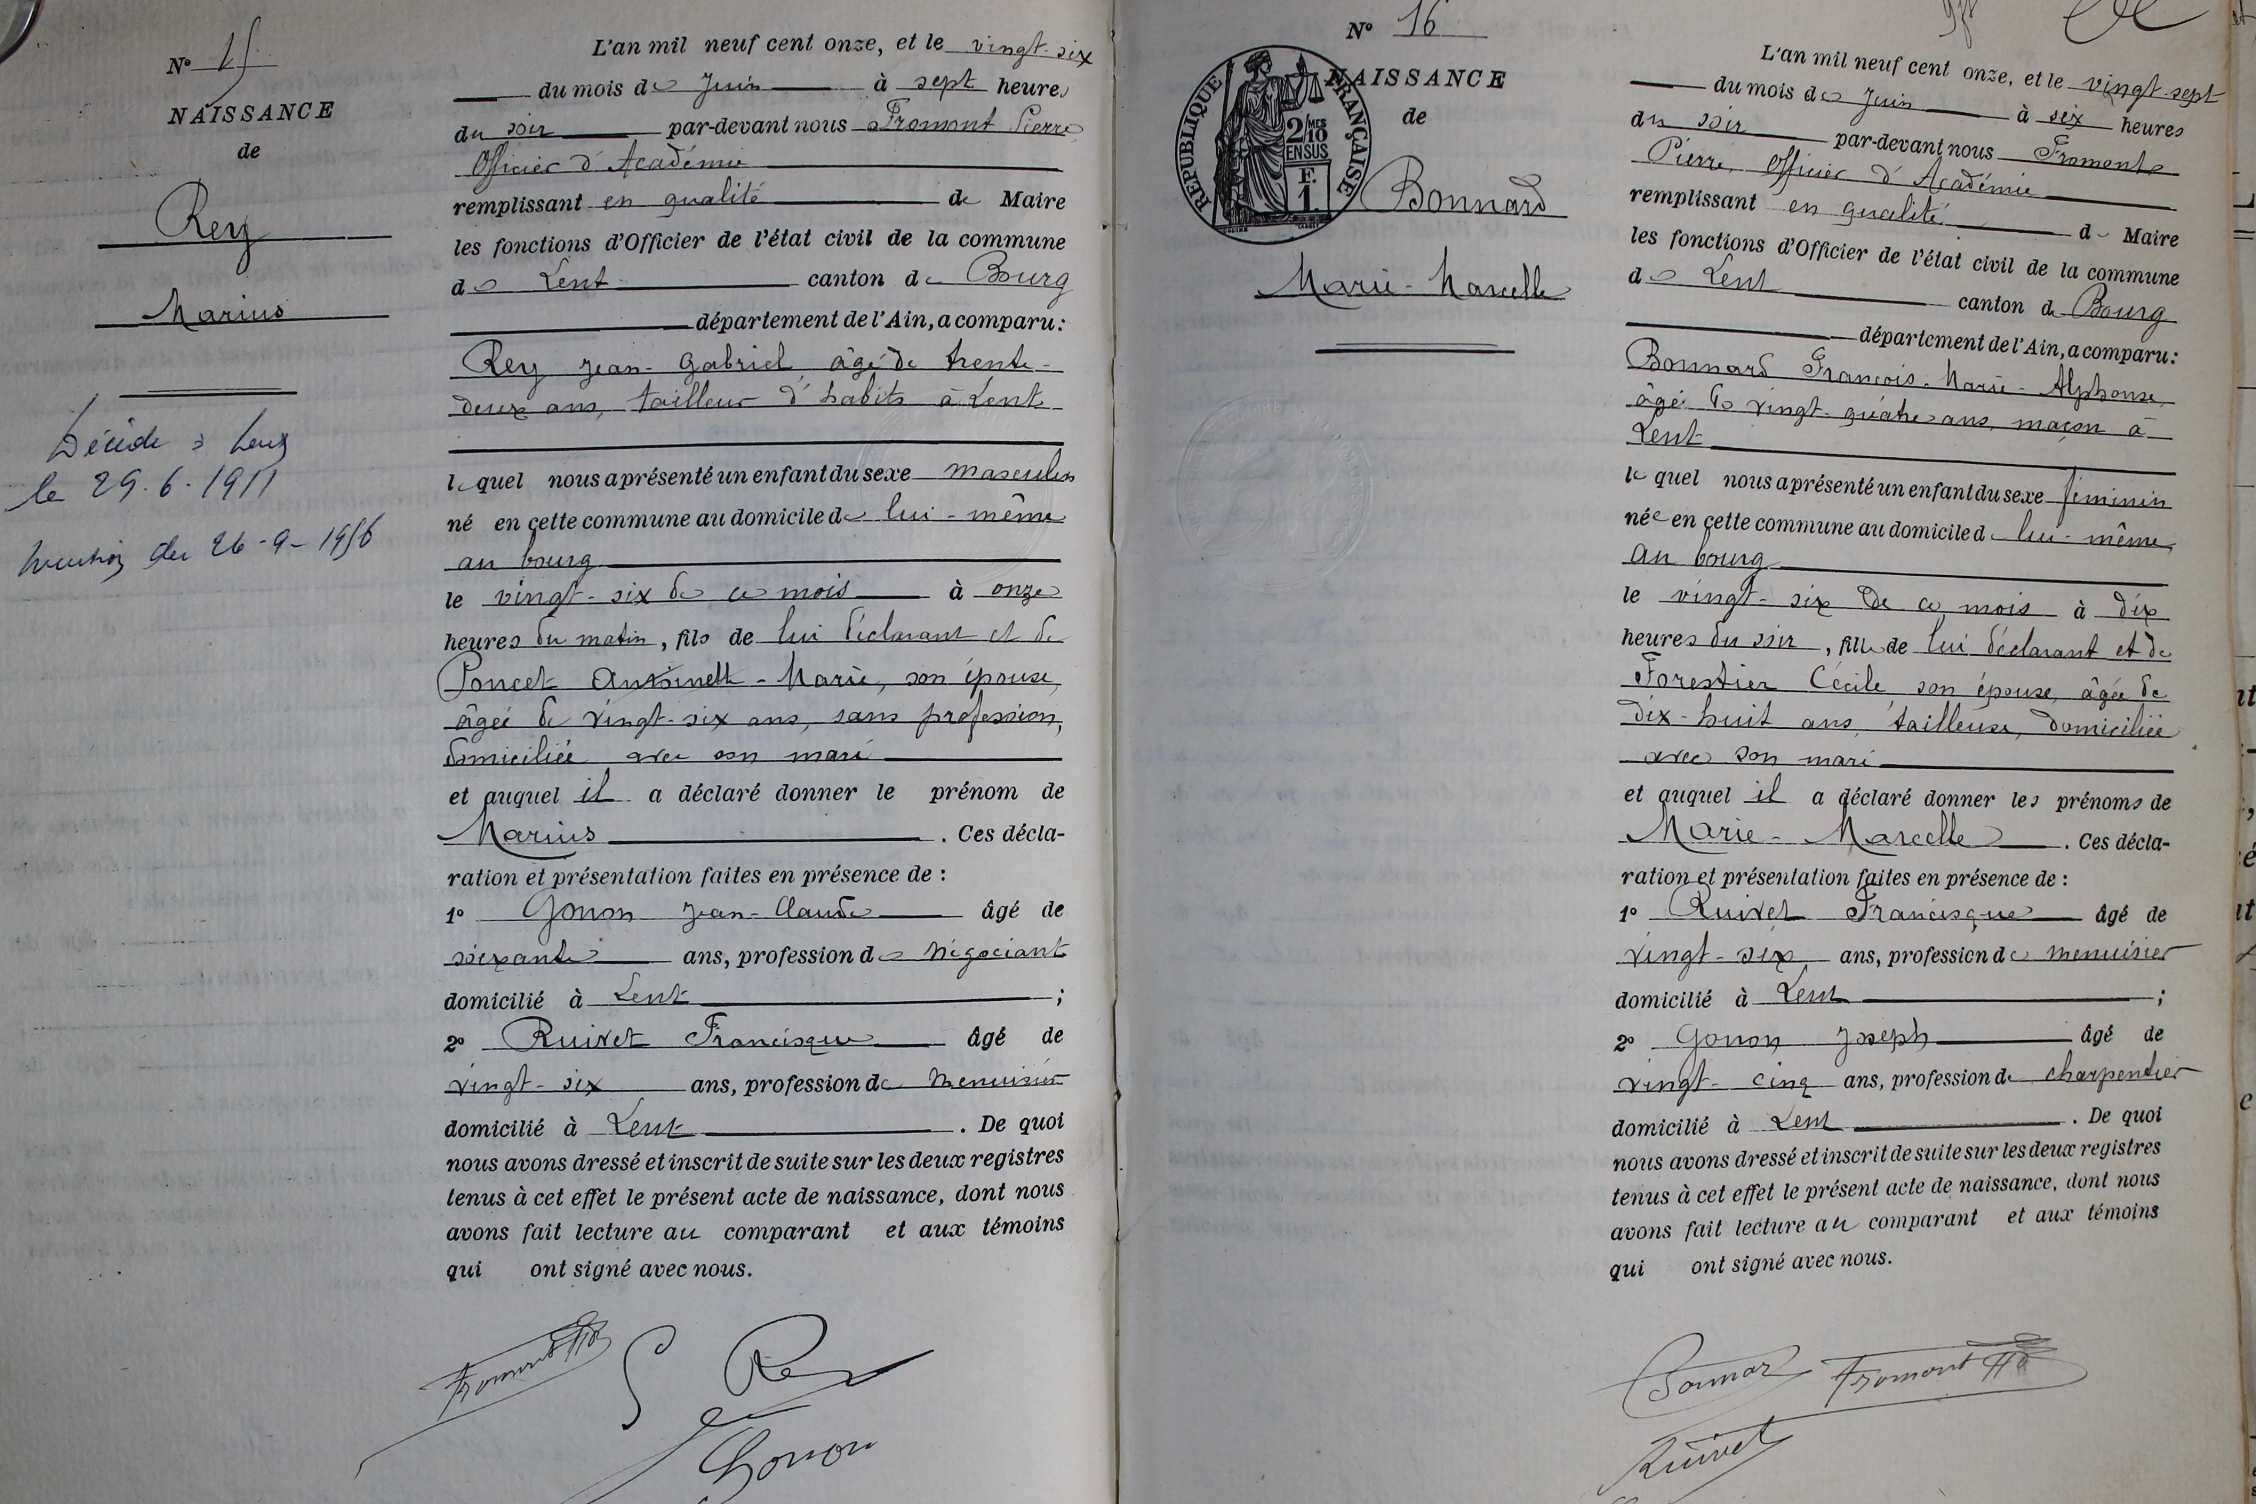 Nº 15
NAISSANCE
de
Rey
Marius
Décédé à Lent
le 29.6.1911
mention du 26-9-1956
L'an mil neuf cent onze, et le vingt-six
du mois de Juin à sept heures
du soir par-devant nous Fromont Pierre
Officier d'Académie
remplissant en qualité de Maire
les fonctions d'Officier de l'état civil de la commune
de Lent canton de Bourg
département de l'Ain, a comparu:
Rey Jean-Gabriel, âgé de trente-
deux ans, tailleur d'habits à Lent
lequel nous a présenté un enfant du sexe masculin
né en cette commune au domicile de lui-même
au bourg
le vingt-six de ce mois à onze
heures du matin, fils de lui déclarant et de
Poncet Antoinette-Marie, son épouse,
âgée de vingt-six ans, sans profession,
domiciliée avec son mari
et auquel il a déclaré donner le prénom de
Marius. Ces décla-
ration et présentation faites en présence de :
1º Gonon Jean-Claude âgé de
soixante ans, profession de négociant
domicilié à Lent ;
2º Ruivet Francisque âgé de
vingt-six ans, profession de menuisier
domicilié à Lent. De quoi
nous avons dressé et inscrit de suite sur les deux registres
tenus à cet effet le présent acte de naissance, dont nous
avons fait lecture au comparant et aux témoins
qui ont signé avec nous.
Fromont Rey
Gonon
Nº 16
NAISSANCE
de
RÉPUBLIQUE FRANÇAISE
2/10
MES
EN SUS
F.
1
Bonnard
Marie-Marcelle
L'an mil neuf cent onze, et le vingt-sept
du mois de Juin à six heures
du soir par-devant nous Fromont
Pierre, Officier d'Académie
remplissant en qualité de Maire
les fonctions d'Officier de l'état civil de la commune
de Lent canton de Bourg
département de l'Ain, a comparu:
Bonnard François-Marie-Alphonse,
âgé de vingt-quatre ans, maçon à
Lent
lequel nous a présenté un enfant du sexe féminin
née en cette commune au domicile de lui-même,
au bourg
le vingt-six de ce mois à dix
heures du soir, fille de lui déclarant et de
Forestier Cécile son épouse, âgée de
dix-huit ans, tailleuse, domiciliée
avec son mari
et auquel il a déclaré donner les prénoms de
Marie-Marcelle. Ces décla-
ration et présentation faites en présence de :
1º Ruivet Francisque âgé de
vingt-six ans, profession de menuisier
domicilié à Lent ;
2º Gonon Joseph âgé de
vingt-cinq ans, profession de charpentier
domicilié à Lent. De quoi
nous avons dressé et inscrit de suite sur les deux registres
tenus à cet effet le présent acte de naissance, dont nous
avons fait lecture au comparant et aux témoins
qui ont signé avec nous.
Bonnard Fromont
Ruivet